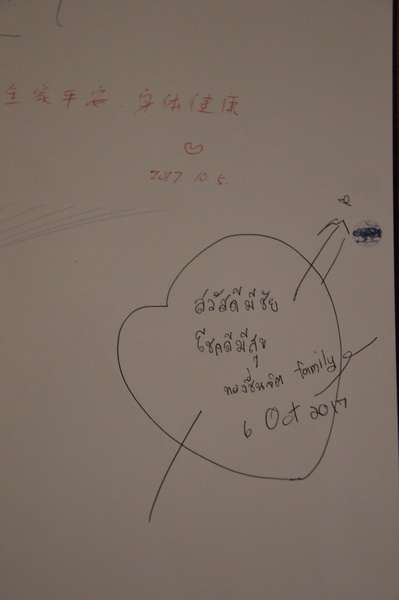 全家平安.身体健康
2017 10.5.
สวัสดีมีชัย
โชคดีมีสุข
ทองชื่นจิต family
6 Oct 2017